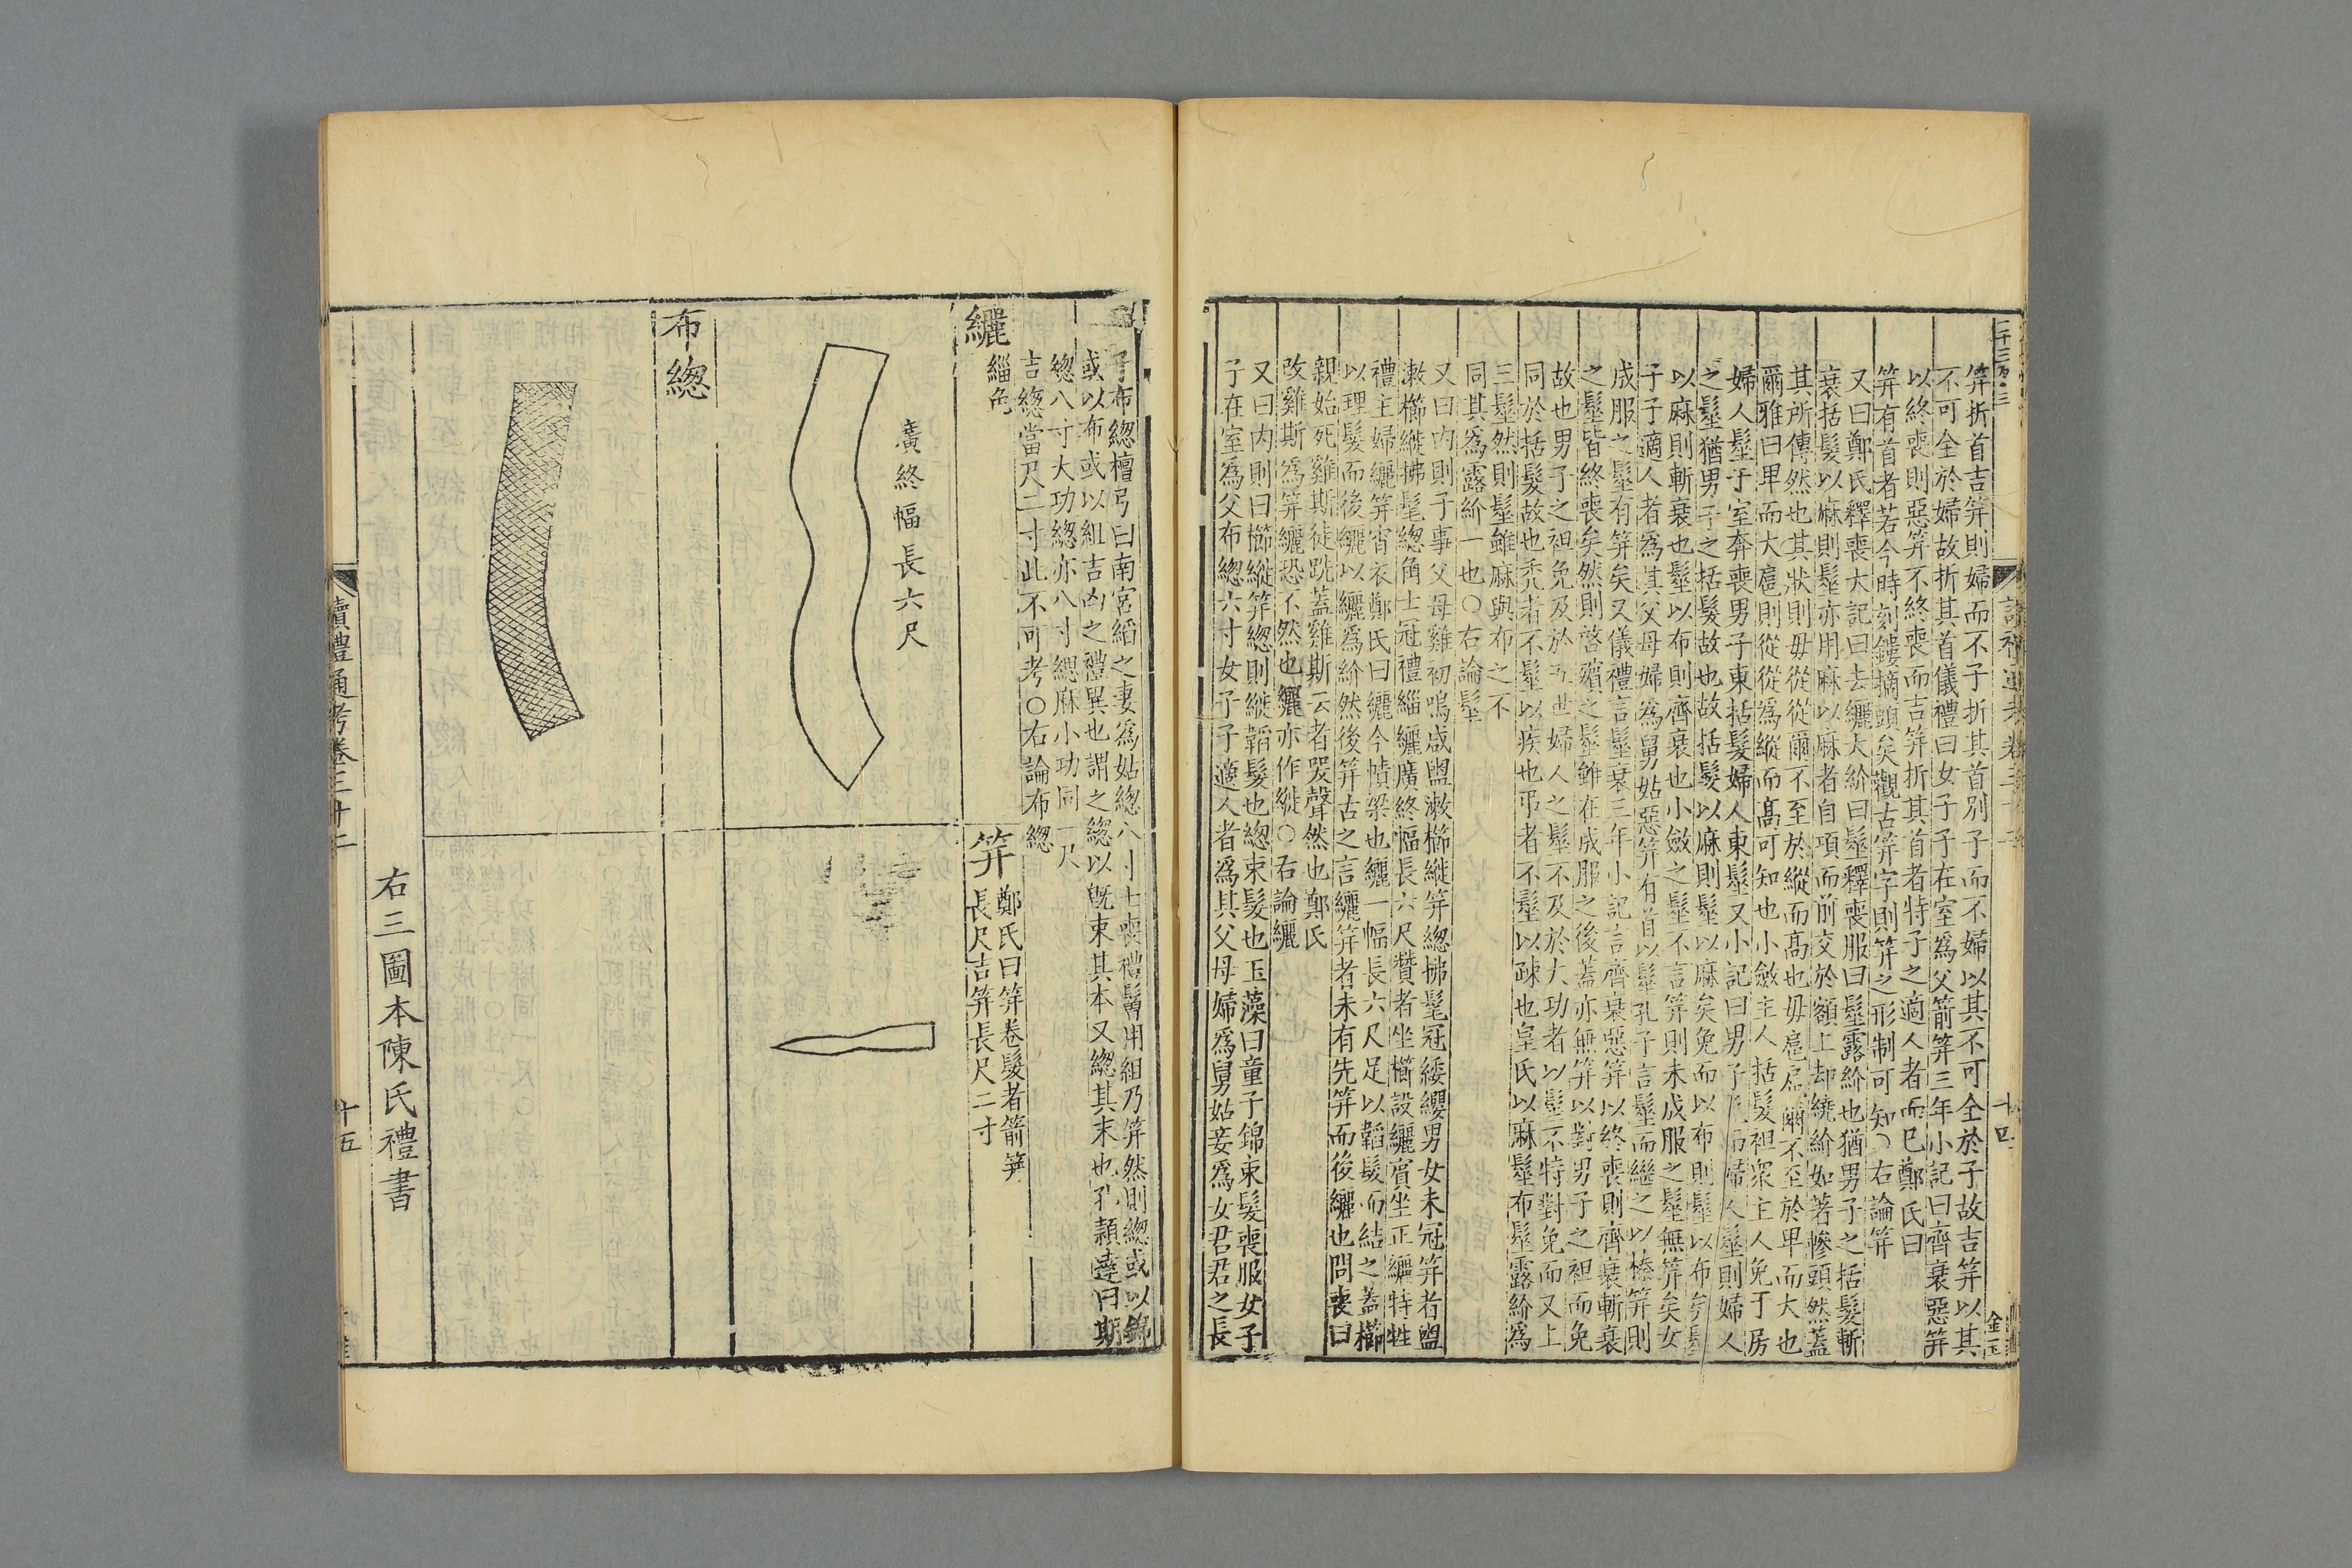 笄折首吉笄則婦而不子折其首別子而不婦以其不可全於子故吉笄以其
不可全於婦故折其首儀禮曰女子子在室爲父箭笄三年小記曰齊衰惡笄
以終喪則惡笄不終喪而吉笄折其首者特子之適人者而巳鄭氏曰
笄有首者若今時刻鏤摘頭矣觀古笄字則笄之形制可知○右論笄
又曰鄭氏釋喪大記曰去纚大紒曰髽釋喪服曰髽露紒也猶男子之括髮斬
衰括髮以麻則髽亦用麻以麻者自項而前交於額上却繞紒如著幓頭然蓋
其所傳然也其狀則毋從從爾不至於縱而髙也毋扈扈爾不至於卑而大也
爾雅曰卑而大扈則從從爲縱而髙可知也小斂主人括髮袒衆主人免于房
婦人髽于室奔喪男子東括髮婦人東髽又小記曰男子免而婦人髽則婦人
之髽猶男子之括髮故也故括髮以麻則髽以麻矣免而以布則髽以布矣髽
以麻則斬衰也髽以布則齊衰也小斂之髽不言笄則未成服之髽無笄矣女
子子適人者爲其父母婦爲舅姑惡笄有首以髽孔子言髽而繼之以榛笄則
成服之髽有笄矣又儀禮言髽衰三年小記言齊衰惡笄以終喪則齊衰斬衰
之髽皆終喪矣然則啓殯之髽雖在成服之後蓋亦無笄以對男子之袒而免
故也男子之袒免及於五世婦人之髽不及於大功者以髽不特對免而又上
同於括髮故也禿者不髽以疾也弔者不髽以疎也皇氏以麻髽布髽露紒爲
三髽然則髽雖麻與布之不
同其爲露紒一也○右論髽
又曰内則子事父母雞初鳴咸盥漱櫛縰笄緫拂髦冠緌纓男女未冠笄者盥
漱櫛縰拂髦緫角士冠禮緇纚廣終幅長六尺贊者坐櫛設纚賓坐正纚特牲
禮主婦纚笄宵衣鄭氏曰纚今幘梁也纚一幅長六尺足以韜髮而結之蓋櫛
以理髮而後纚以纚爲紒然後笄古之言纚笄者未有先笄而後纚也問喪曰
親始死雞斯徒跣蓋雞斯云者哭聲然也鄭氏
改雞斯爲笄纚恐不然也纚亦作縰○右論纚
又曰内則曰櫛縰笄緫則縰韜髮也緫束髮也玉藻曰童子錦束髮喪服女子
子在室爲父布緫六寸女子子適人者爲其父母婦爲舅姑妾爲女君君之長
子布緫檀弓曰南宮縚之妻爲姑緫八寸士喪禮鬠用組乃笄然則緫或以錦
或以布或以組吉凶之禮異也謂之緫以旣束其本又緫其末也孔頴達曰期
緫八寸大功緫亦八寸緦麻小功同一尺
吉緫當尺二寸此不可考○右論布緫
纚
緇色
廣終幅長六尺
笄
鄭氏曰笄卷髮者箭笄
長尺吉笄長尺二寸
布緫
右三圖本陳氏禮書
讀禮通考卷三十二
十五